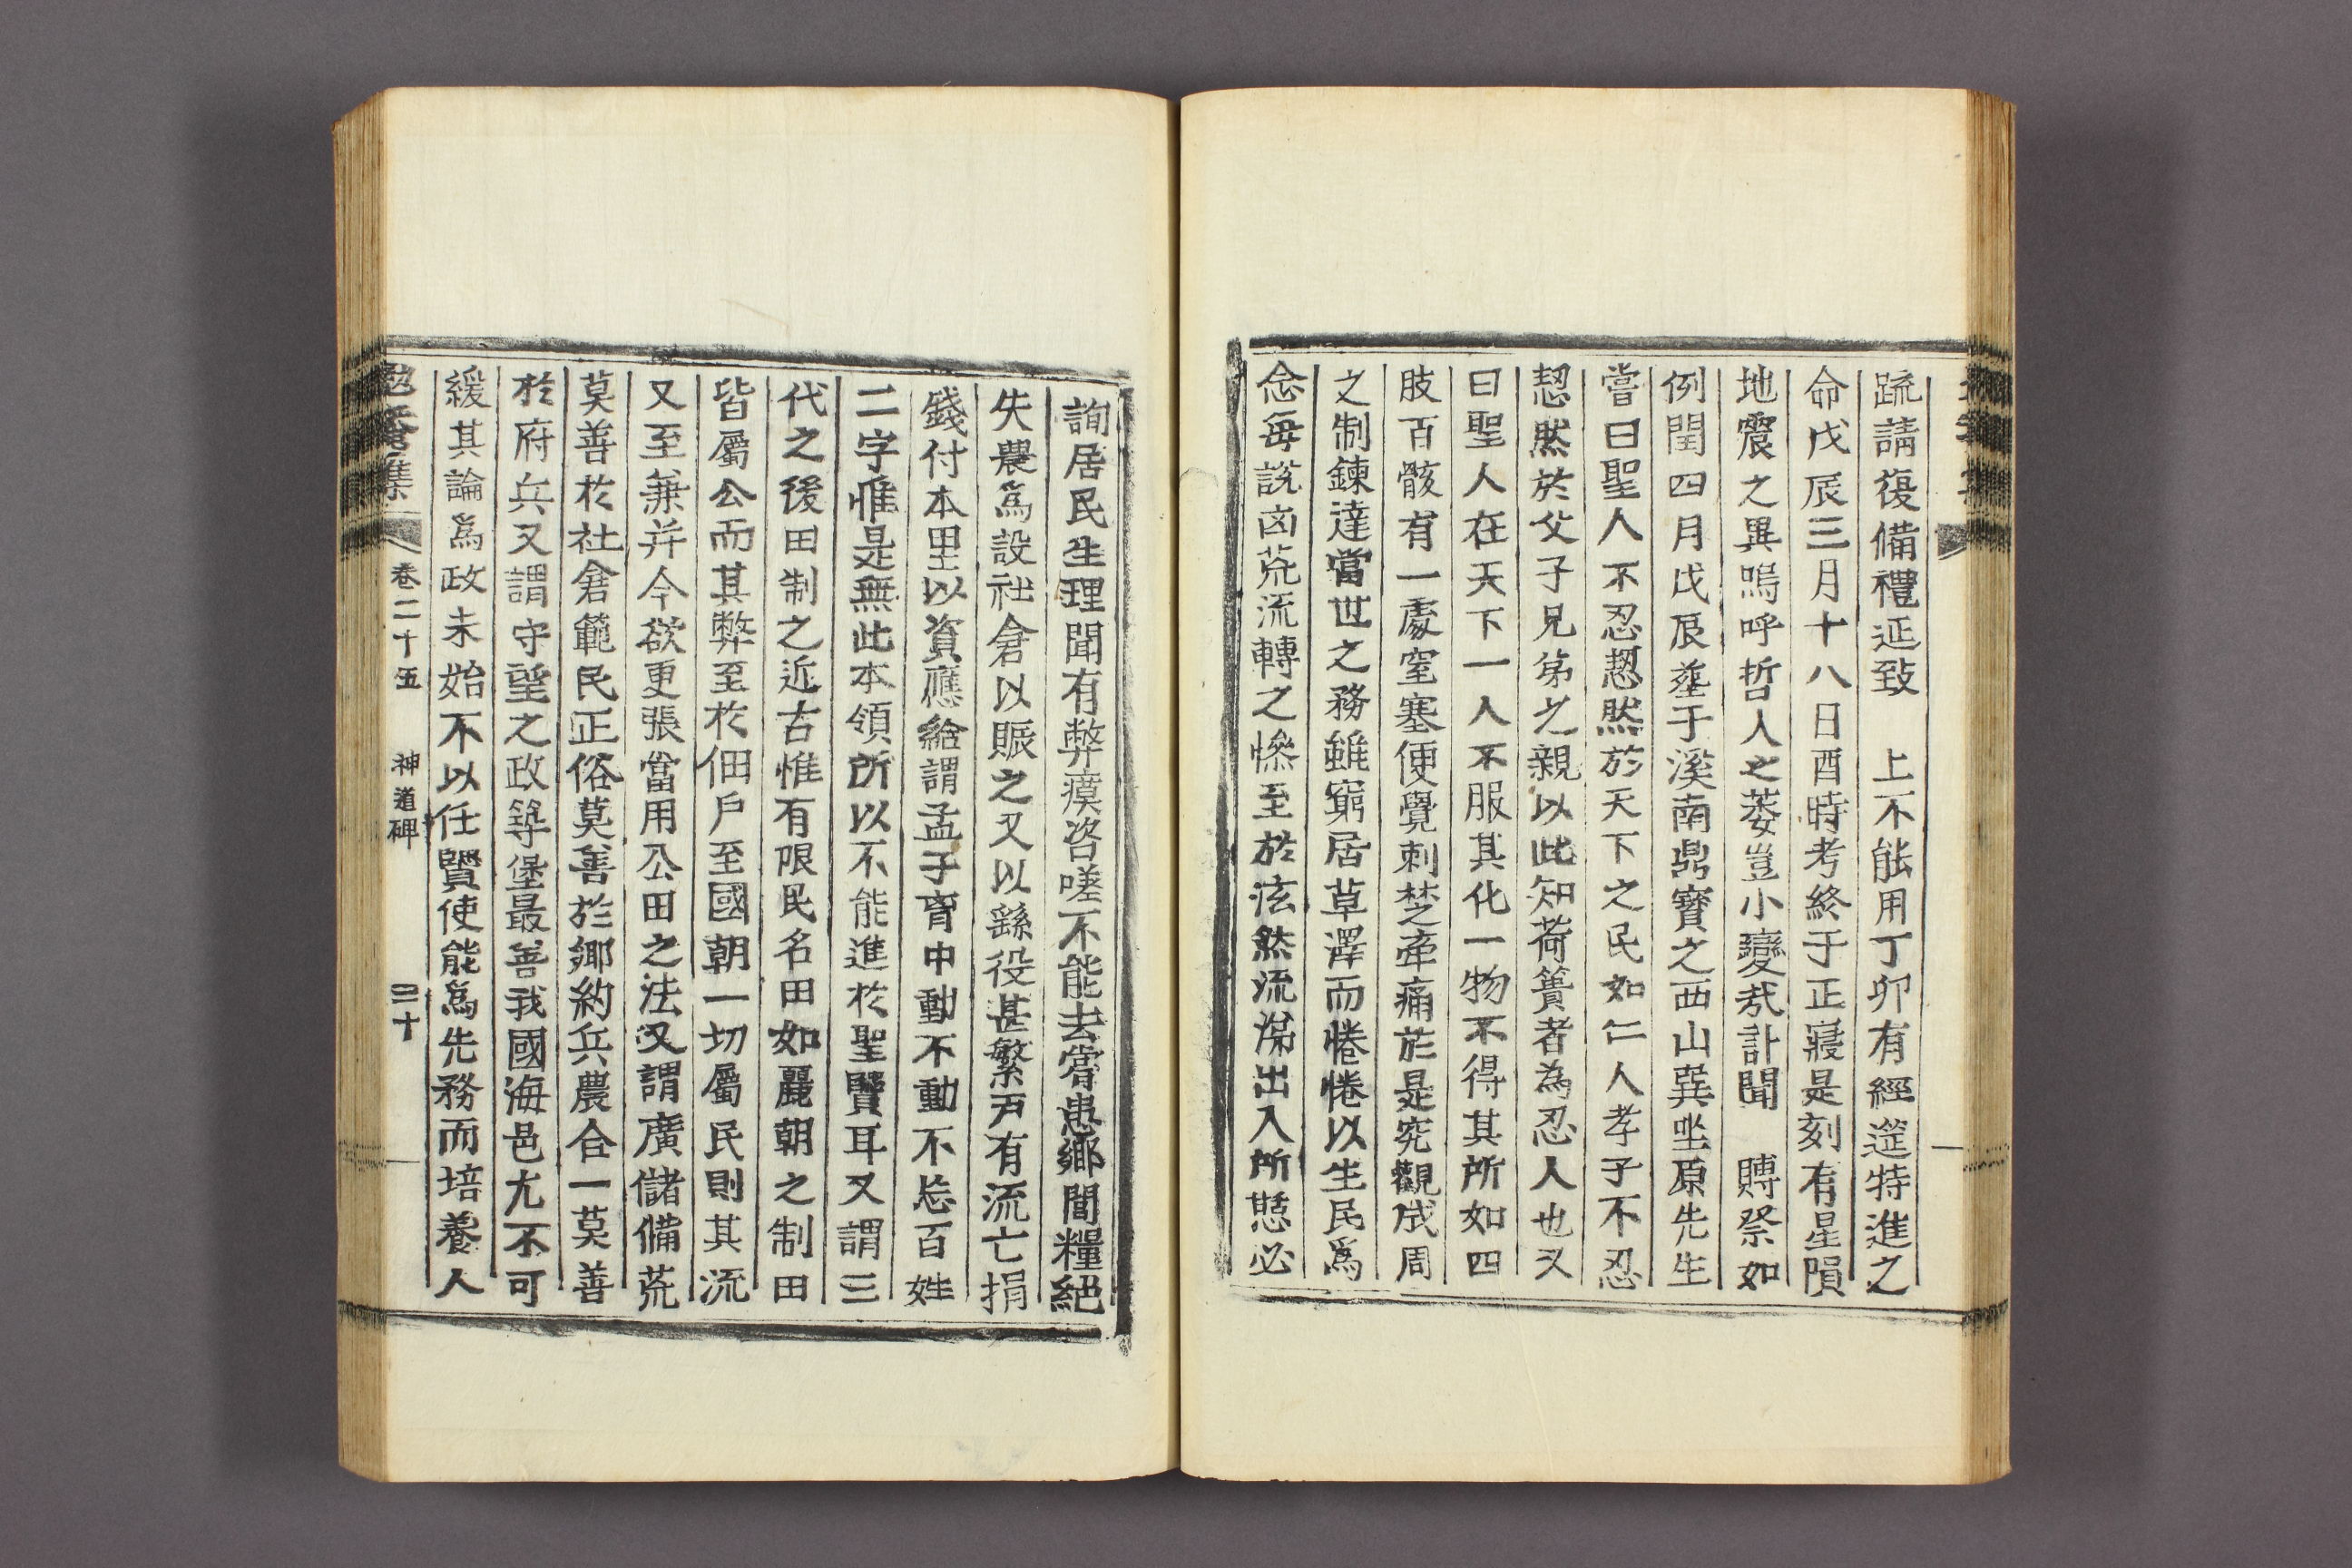 疏請復備禮延致　上不能用丁卯有經筵特進之
命戊辰三月十八日酉時考終于正寢是刻有星隕
地震之異嗚呼哲人之萎豈小變㢤訃聞　賻祭如
例閏四月戊辰葬于溪南鼎寶之西山巽坐原先生
嘗曰聖人不忍恝然於天下之民如仁人孝子不忍
恝然於父子兄弟之親以此知荷蕢者為忍人也又
曰聖人在天下一人不服其化一物不得其所如四
肢百骸有一處窒塞便覺刺楚牽痛於是究觀成周
之制鍊達當世之務雖窮居草澤而惓惓以生民爲
念每說凶荒流轉之慘至於泫然流涕出入所憇必
詢居民生理聞有弊瘼咨嗟不能去嘗患鄉間糧絕
失農爲設社倉以賑之又以繇役甚繁戶有流亡捐
錢付本里以資應給謂孟子胷中動不動不忘百姓
二字惟是無此本領所以不能進於聖賢耳又謂三
代之後田制之近古惟有限民名田如麗朝之制田
皆屬公而其弊至於佃戶至國朝一切屬民則其流
又至兼并今欲更張當用公田之法又謂廣儲備荒
莫善於社倉範民正俗莫善於鄉約兵農合一莫善
於府兵又謂守望之政築堡最善我國海邑尤不可
緩其論爲政未始不以任賢使能爲先務而培養人
勉菴集　卷二十五　神道碑　三十